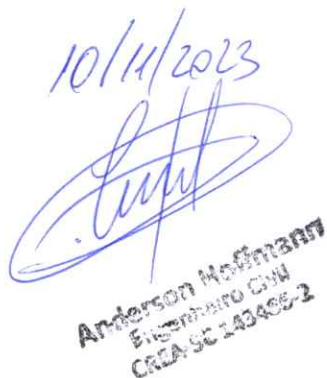 10/11/2023
Anderson Hoffmann
Engenheiro Civil
CREA-SC 143456-2